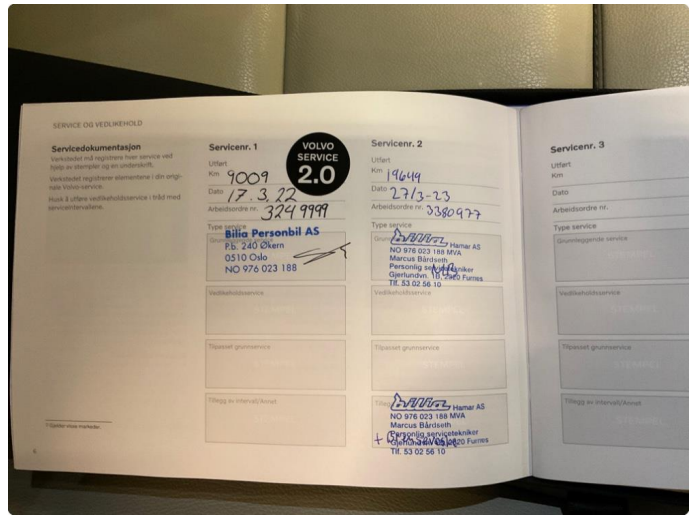 SERVICE OG VEDLIKEHOLD
Servicedokumentasjon
Verkstedet må registrere hver service ved
hjelp av stempler og en underskrift.
Verkstedet registrerer elementene i din origi-
nale Volvo-service.
Husk å utføre vedlikeholdsservice i tråd med
serviceintervallene.
6
Servicenr. 1
VOLVO
SERVICE
2.0
Utført
Km 9009
Dato 17.3,22
Arbeidsordre nr. 3249999
Type service
Bilia Personbil AS
P.b. 240 Økern
0510 Oslo
NO 976 023 188
Vedlikeholdsservice
Tilpasset grunnservice
Tillegg av intervall/Annet
Servicenr. 2
Utført
Km 19649
Dato 27/3-23
Arbeidsordre nr. 3380977
Type service
bilia Hamar AS
NO 976 023 188 MVA
Marcus Bårdseth
Personlig servicetekniker
Gjerlundvn. 2320 Furnes
Tlf. 53 02 56 10
Vedlikeholdsservice
Tilpasset grunnservice
bilia Hamar AS
NO 976 023 188 MVA
Marcus Bårdseth
Personlig servicetekniker
2320 Furnes
Tlf. 53 02 56 10
Servicenr. 3
Utført
Km
Dato
Arbeidsordre nr.
Type service
Grunnleggende service
Vedlikeholdsservice
Tilpasset grunnservice
Tillegg av intervall/Annet